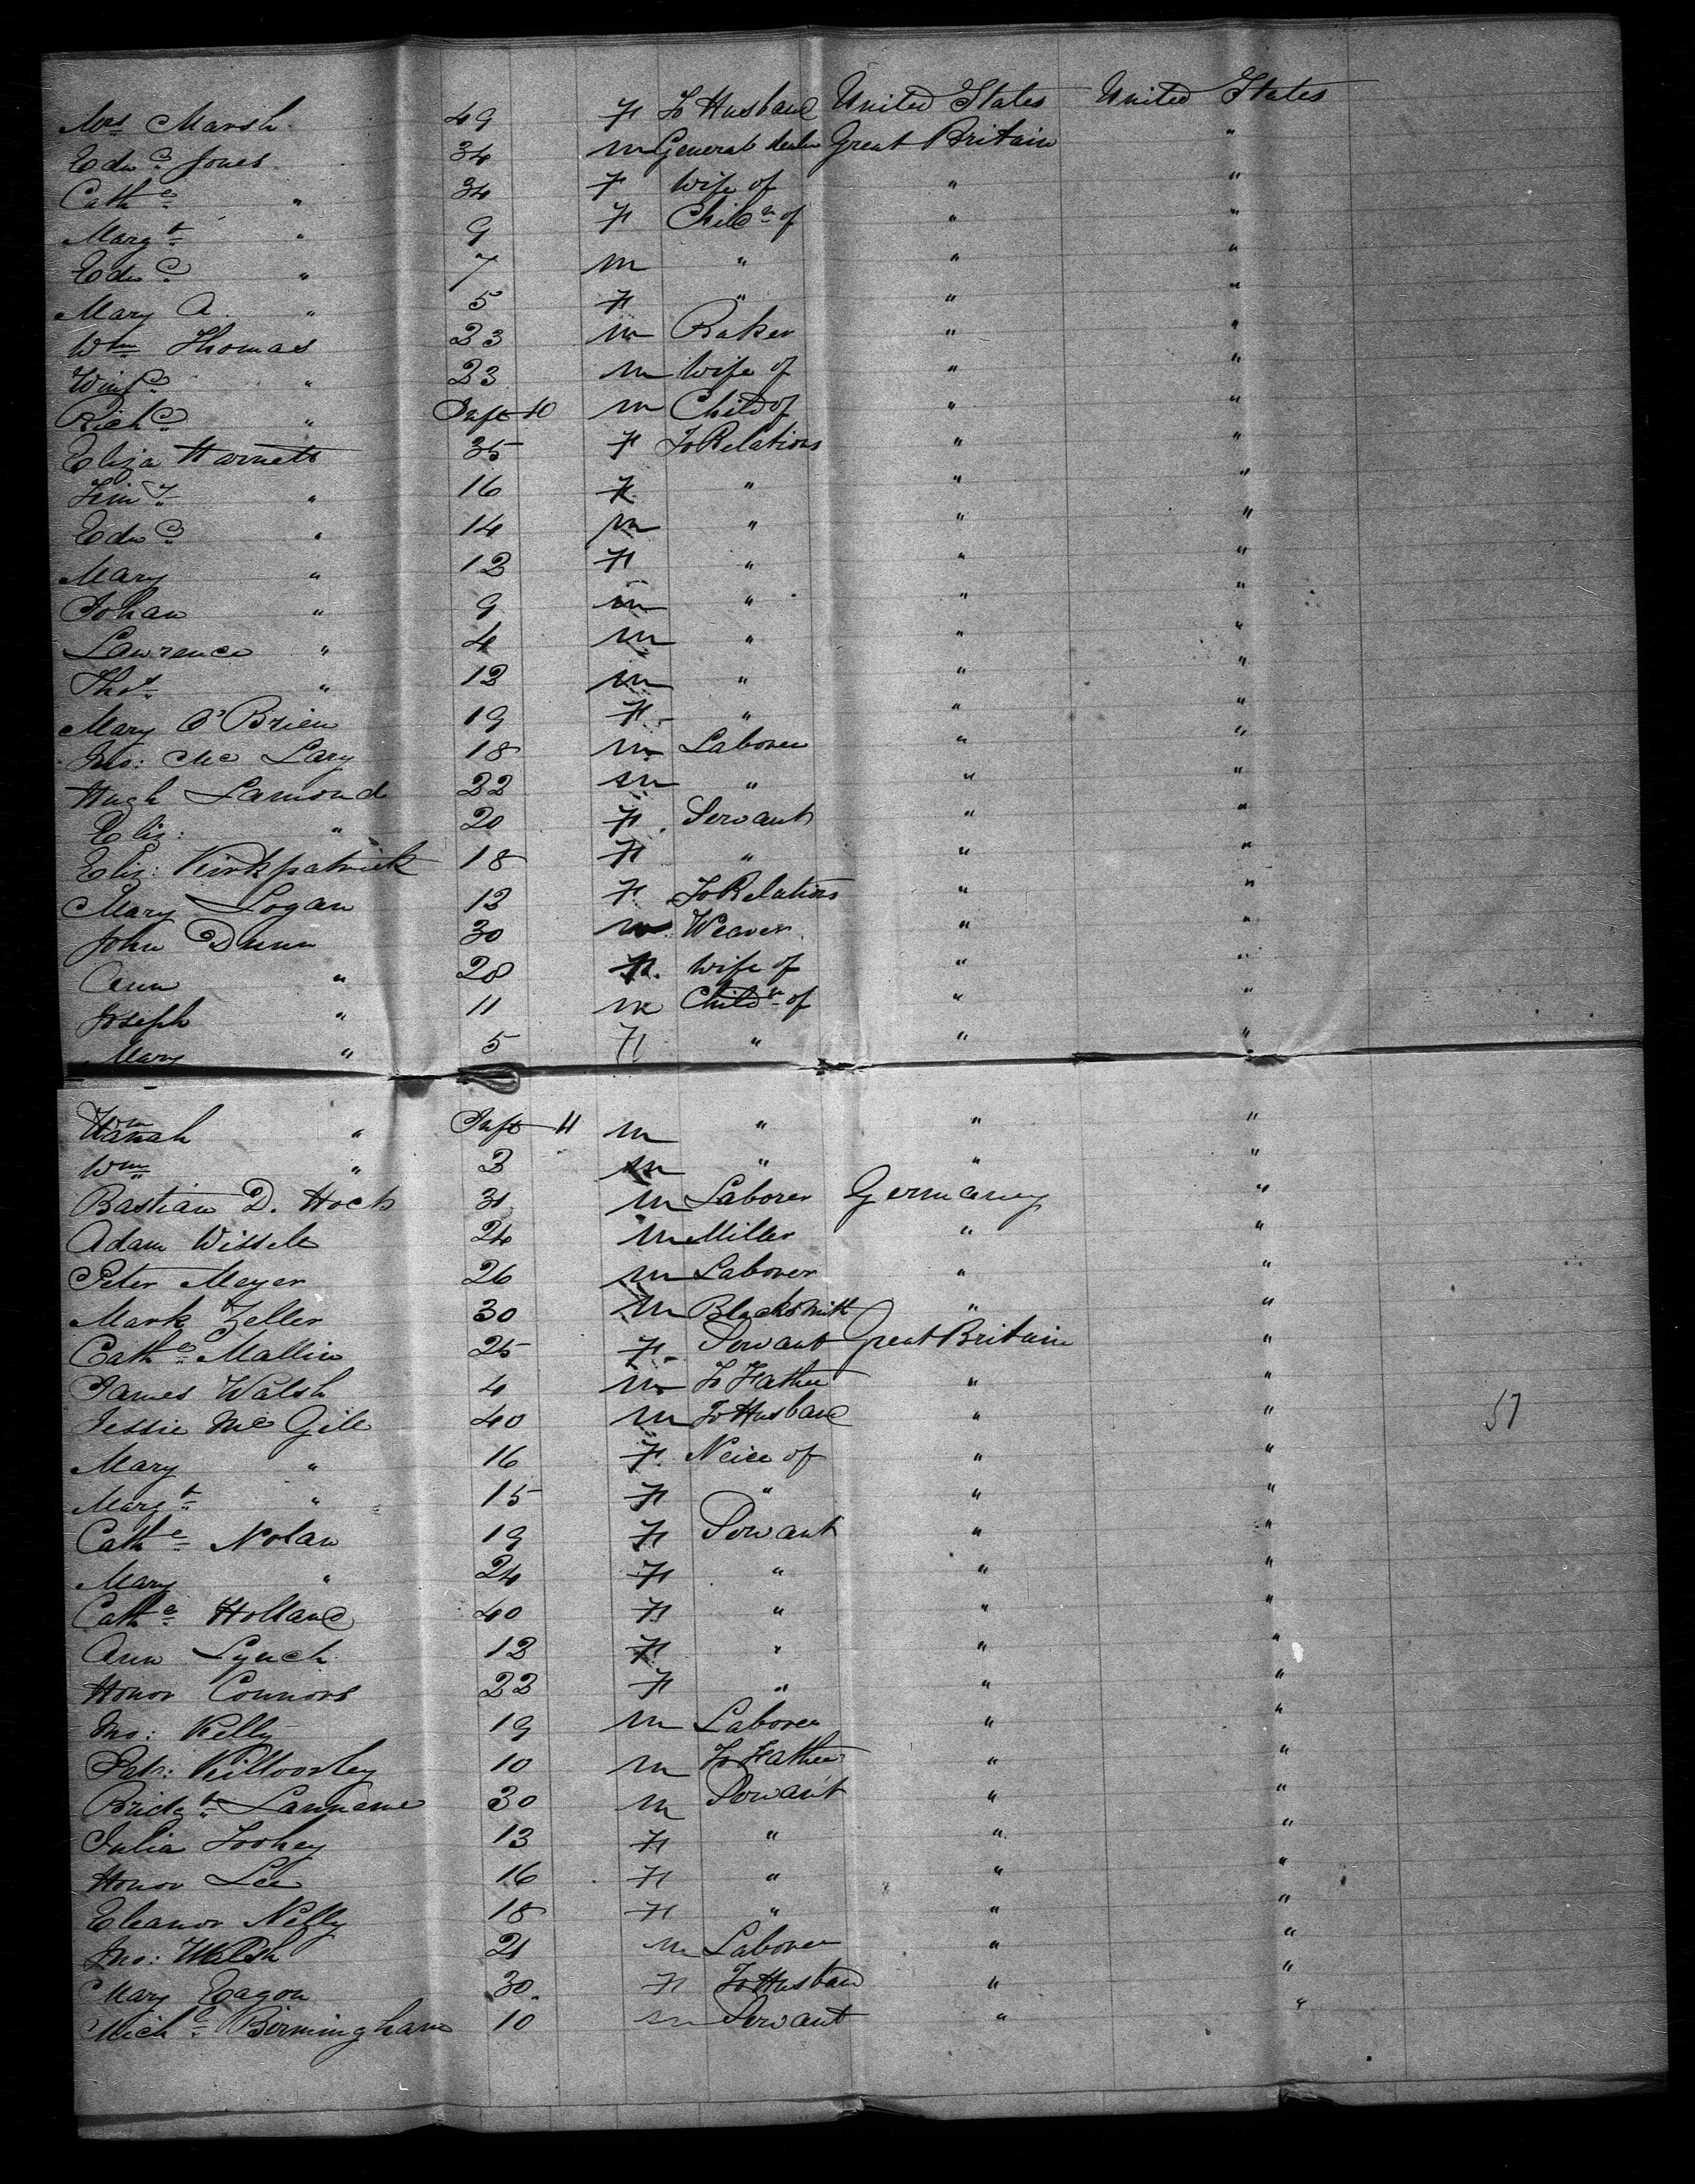 Mrs Marsh 49 F To Husband United States United States
Edwd Jones 34 m General dealer Great Britain "
Cathe " 34 F Wife of " "
Margt " 9 F Childn of " "
Edwd " 7 m " " "
Mary A. " 5 F " " "
Wm Thomas 23 m Baker " "
Winfd " 23 m Wife of " "
Richd " Inft 10 m Child of " "
Eliza Harnett 35 F To Relations " "
" 16 F " " "
Edwd " 14 m " " "
Mary " 12 F " " "
Johan " 9 m " " "
Lawrence " 4 m " " "
Thos " 12 m " " "
Mary O'Brien 19 F " " "
Jno: Mc Lary 18 m Laborer " "
Hugh Lamond 22 m " " "
Eliz: " 20 F Servant " "
Eliz: Kirkpatrick 18 F " " "
Mary Logan 12 F To Relations " "
John Dunn 30 m Weaver " "
Ann " 28 F. Wife of " "
Joseph " 11 m Childn of " "
Mary " 5 F " " "
Hanah " Inft 11 m " " "
Wm " 2 m " " "
Bastian D. Hoch 31 m Laborer Germany "
Adam Wissele 24 m Miller " "
Peter Meyer 26 m Laborer " "
Mark Zeller 30 m Blacksmith " "
Cathe Mallin 25 F Servant Great Britain "
James Walsh 4 m To Father " "
Jessie McGill 40 m To Husband " " 57
Mary " 16 F. Neice of " "
Margt " 15 F " " "
Cathe Nolan 19 F Servant " "
Mary " 24 F " " "
Cathe Holland 40 F " " "
Ann Lynch 12 F " " "
Honor Connors 22 F " " "
Jno: Kelly 19 m Laborer " "
Patr: 10 m To Father " "
Bridgt Lannane 30 m Servant " "
Julia Toohey 13 F " " "
Honor Lee 16 F " " "
Eleanor Nelly 18 F " " "
Jno: Walsh 21 m Laborer " "
Mary Eagon 30 F To Husban " "
Michl Birmingham 10 m Servant " "